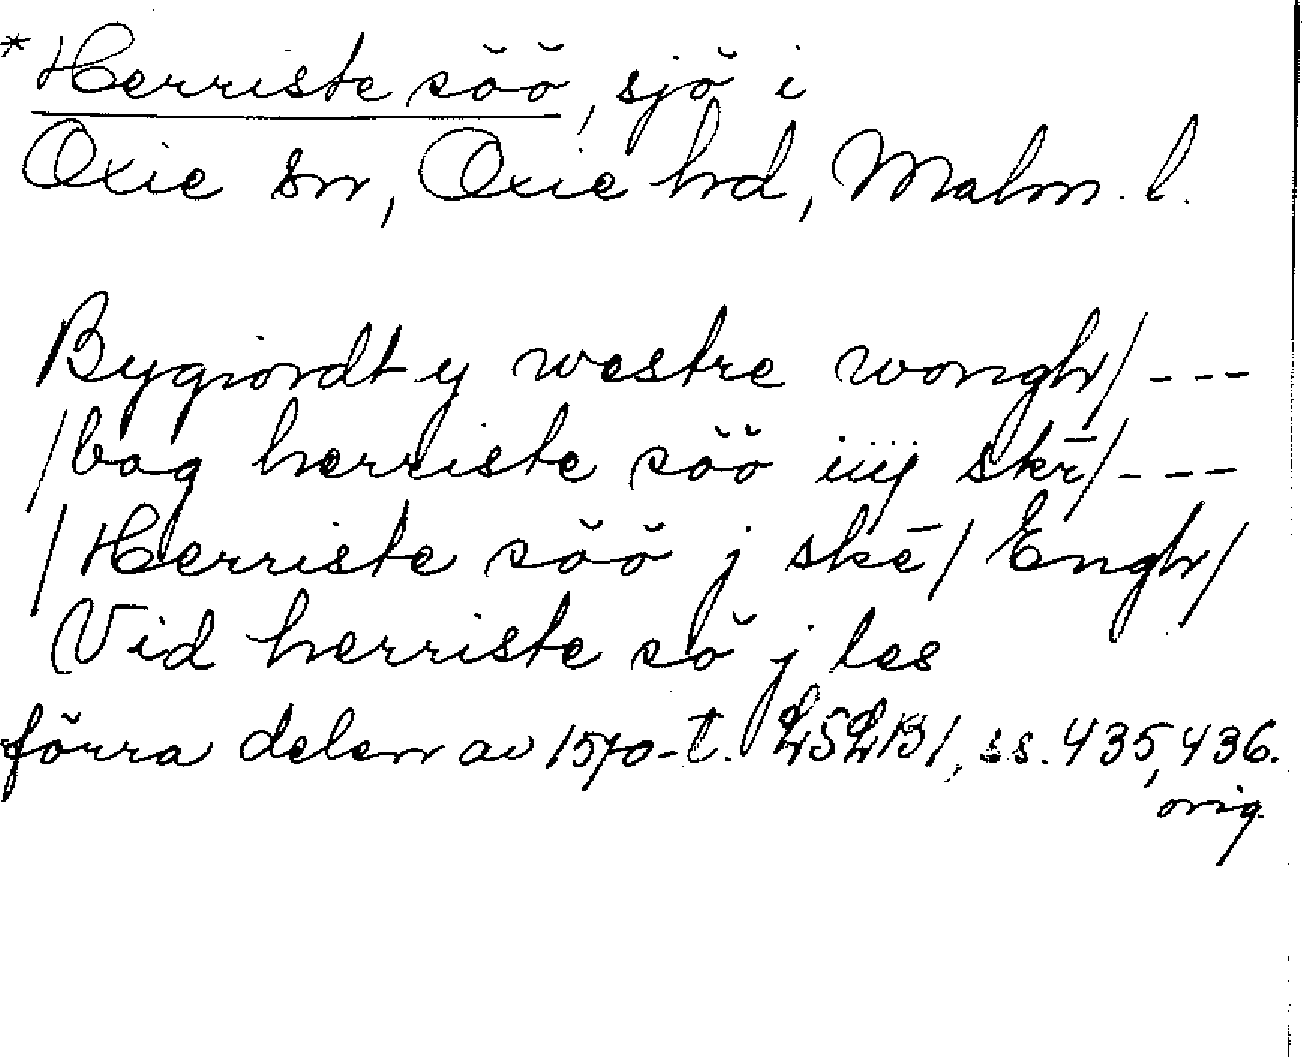 *Herriste söö, sjö i
Oxie sn, Oxie hd, Malm. l.
Bygiordt y westre wongh/ - - -
/bag herriste söö iiij skr̄/ - - -
/Herriste söö j skē/ Engh/
Vid herriste sö j les
förra delen av 1570-t. LSLB1, ss. 435, 436.
orig.